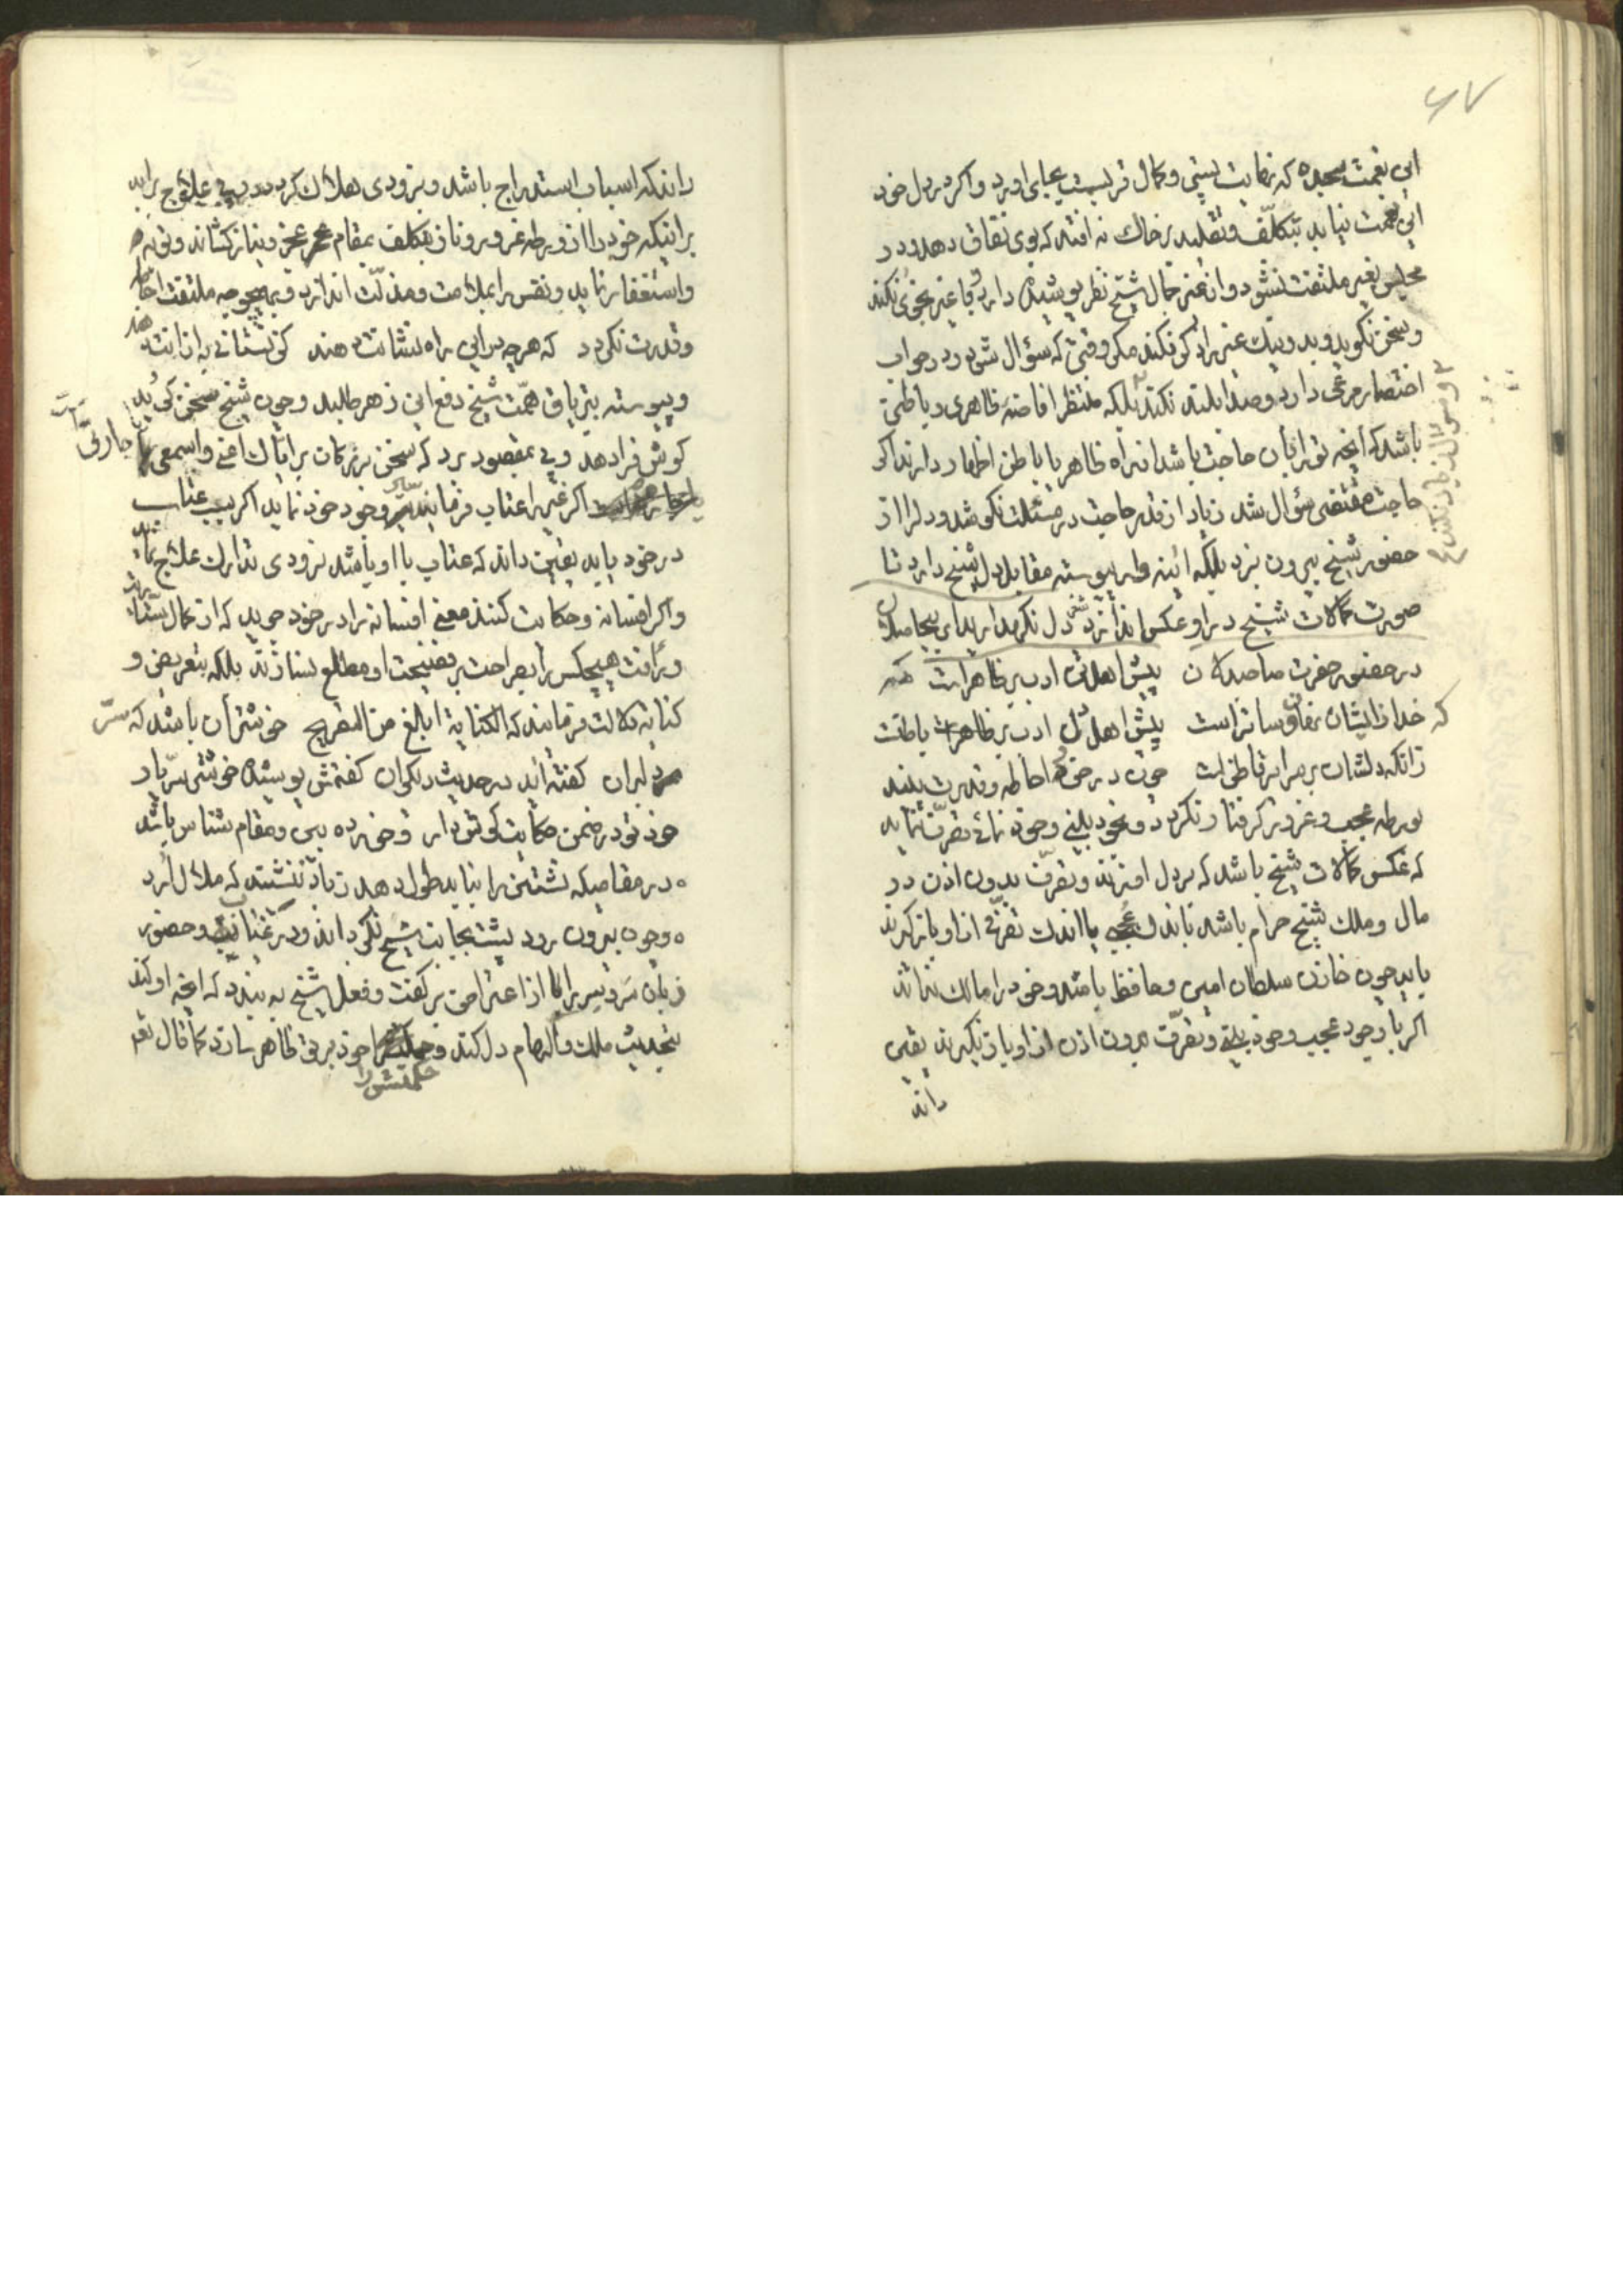 ۶۷
این نعمت سجده که نهایت پستی و کمال قربست بجای اورد و اکر در دل خود
این نعمت نیابد بتکلّف و تقلید بر خاک نه افتد که بوی نفاق دهد و در
مجلس بغیر ملتفت نشود و از غیر جمال شیخ نظر پوشیده دارد و با غیر نجوی نکند
و سخن نکوید و بد و نیک غیر را ذکر نکند مکر وقتی که سؤال شود و در جواب
اختصار مرعی دارد و صدا بلند نکند بلکه منتظر افاضهٔ ظاهری و باطنی
باشد که انچه تو را بآن حاجت باشد از راه ظاهر یا باطن اظهار دارند اکر
حاجت مقتضی سؤال شد زیاد از قدر حاجت در مسئلت نکوشد و دل را از
حضور شیخ بیرون نبرد بلکه ائینه وار پیوسته مقابل دل شیخ دارد تا
صورت کمالات شیخ در او عکس اندازد دل نکه دارید ای بیحاصلان
در حضور حضرت صاحبدلان پیش اهل تن ادب بر ظاهر است
که خدا زایشان نهان و ساتر است پیش اهل دل ادب بر باطنست
زانکه دلشان بر سرایر فاطن است چون در خود احاطه و قدرت بیند
بورطه عجب و غرور کرفتار نکردد و بخود بینی و خود نمائی تصرّف ننماید
که عکس کمالات شیخ باشد که بر دل او زند و تصرّف بدون اذن در
مال و ملک شیخ حرام باشد تا باندک عجبی یا اندک تصرّفی از او باز کیرند
باید چون خازن سلطان امین و حافظ باشد و خود را مالک نداند
اکر با وجود عجب و خود بینی و تصرّف بدون اذن از او باز نکیرند یقین
داند
داند که اسباب استدراج باشد و بزودی هلاک کردد و پی علاج براید
براینکه خود را از ورطه غرور و ناز بتکلف بمقام عجز و نیاز کشاند و توبه
و استغفار نماید و نفس را بملامت و مذلّت اندازد و بهیچوجه ملتفت احاطه
و قدرت نکردد که هرچه در این راه نشانت دهند کر نستانی به از انت دهند
و پیوسته بتریاق همّت شیخ دفع این زهر طلبد و چون شیخ سخن کوید
کوش فرا دهد و پی بمقصود برد که سخن بزرکان بر ایّاک اعنی و اسمعی یا جارتی است
اکر غیر را عتاب فرمایند سیر وجود خود نماید اکر سبب عتاب
در خود یابد یقین داند که عتاب با او باشد بزودی تدارک علاج نماید
و اکر افسانه و حکایت کنند معنی افسانه را در خود جوید که از کمال ستاریت
و رأفت هیچکس را بصراحت بر فضیحت او مطلع نسازند بلکه بتعریض و
کنایه دلالت فرمایند که الکنایة ابلغ من التصریح خوشتر آن باشد که سرّ
دلبران کفته اید در حدیث دیکران کفتمش پوشیده خوشتر سرّ یار
خود تو در ضمن حکایت کوش دار و خورده بین و مقام شناس باشد
در مقامیکه نشستن را نباید طول دهد زیاد ننشیند که ملال آرد
و چون بیرون رود پشت بجانب شیخ نکرداند و در غیاب و حضور
زبان سرّ و سر را از اعتراض بر کفت و فعل شیخ به بندد که انچه او کند
بتحدیث ملک و الهام دل کند و حکمتش را خود بر تو ظاهر سازد کما قال تعم